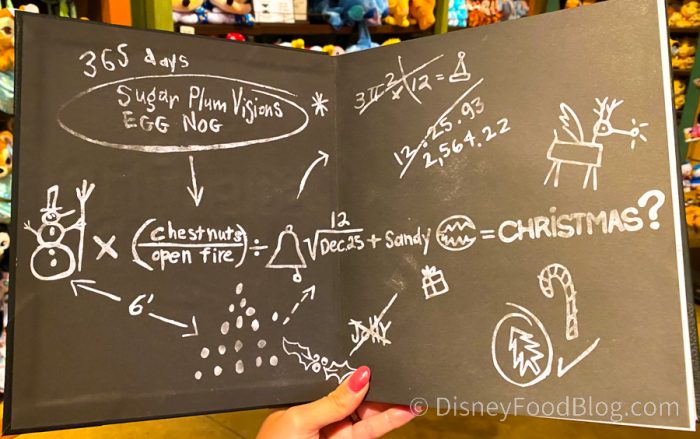 365 days
Sugar Plum Visions *
EGG NOG
3π² x 12 =
12.25.93
2,564.22
x (chestnuts / open fire) ÷ √ 12 / Dec. 25 + Sandy = CHRISTMAS?
6'
JOLLY
© DisneyFoodBlog.com